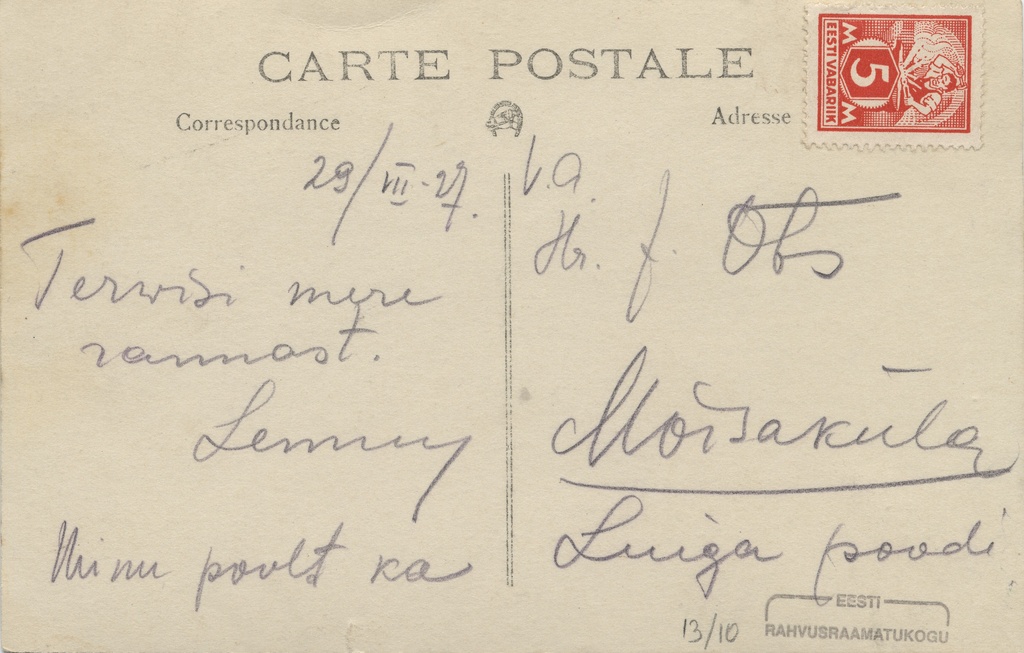 CARTE POSTALE
Correspondance
Adresse
EESTI VABARIIK
5
M M
29/VII-27.
Terwisi mere
rannast.
Lemmy
Minu poolt ka
V.a.
Hr. J. Obs
Mõisaküla
Luiga poodi
13/10
EESTI
RAHVUSRAAMATUKOGU